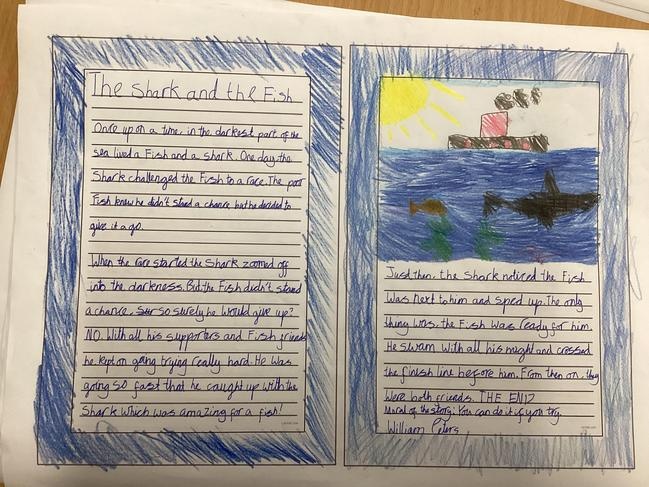 The Shark and the Fish
Once upon a time, in the darkest part of the
sea lived a Fish and a shark. One day, the
Shark challenged the Fish to a race. The poor
Fish knew he didn't stand a chance but he decided to
give it a go.
When the race started the Shark zoomed off
into the darkness. But the Fish didn't stand
a chance, so surely he would give up?
NO. With all his supporters and Fish friends
he kept on going trying really hard. He was
going so fast that he caught up with the
Shark which was amazing for a fish!
Just then, the Shark noticed the Fish
was next to him and sped up. The only
thing was, the Fish was ready for him.
He swam with all his might and crossed
the finish line before him. From then on, they
were both friends. THE END
Moral of the story: You can do it if you try.
William Peters